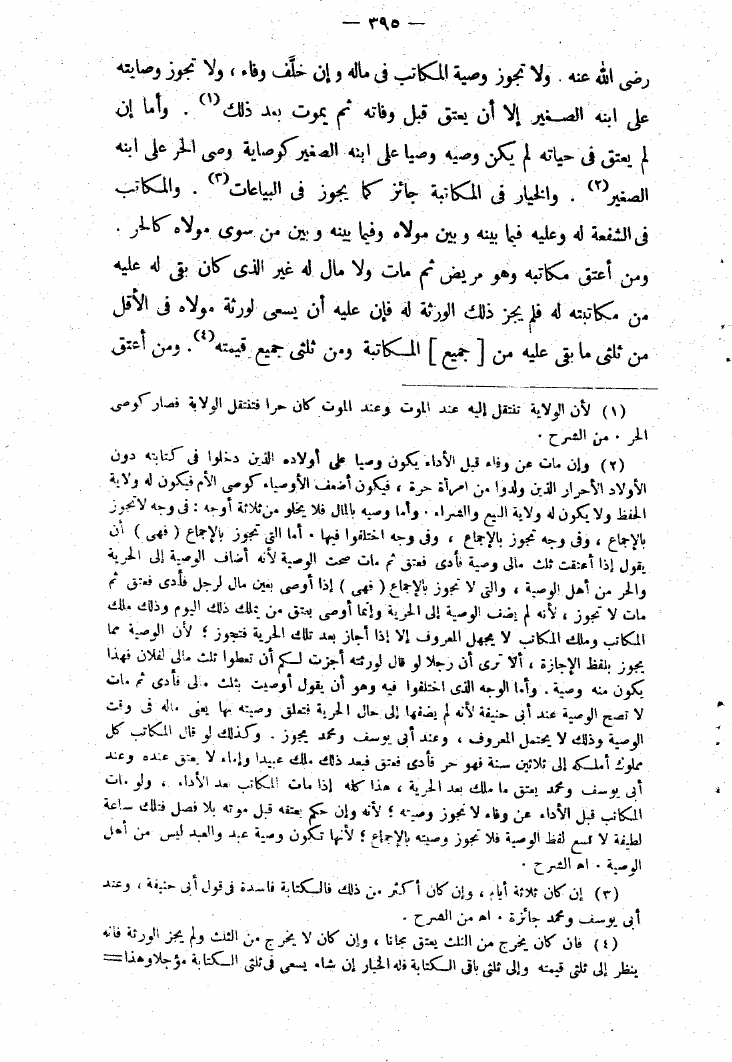 — ٣٩٥ —
رضى الله عنه . ولا تجوز وصية المكاتب فى ماله و إن خلَّف وفاء ، ولا تجوز وصايته
على ابنه الصغير إلا أن يعتق قبل وفاته ثم يموت بعد ذلك(١) . وأما إن
لم يعتق فى حياته لم يكن وصيه وصيا على ابنه الصغير كوصاية وصى الحر على ابنه
الصغير(٢) . والخيار فى المكاتبة جائز كما يجوز فى البياعات(٣) . والمكاتب
فى الشفعة له وعليه فيما بينه و بين مولاه وفيما بينه و بين من سوى مولاه كالحر .
ومن أعتق مكاتبه وهو مريض ثم مات ولا مال له غير الذى كان بقى له عليه
من مكاتبته له فلم يجز ذلك الورثة له فإن عليه أن يسعى لورثة مولاه فى الأقل
من ثلثى ما بقى عليه من [ جميع ] المكاتبة ومن ثلثى جميع قيمته(٤). ومن أعتق
(١) لأن الولاية تنتقل إليه عند الموت وعند الموت كان حرا فتنتقل الولاية فصار كوصى
الحر . من الشرح .
(٢) وإن مات عن وفاء قبل الأداء يكون وصيا على أولاده الذين دخلوا فى كتابته دون
الأولاد الأحرار الذين ولدوا من امرأة حرة ، فيكون أضعف الأوصياء كوصى الأم فيكون له ولاية
الحفظ ولا يكون له ولاية البيع والشراء . وأما وصيه بالمال فلا يخلو من ثلاثة أوجه : فى وجه لا تجوز
بالإجماع ، وفى وجه تجوز بالإجماع ، وفى وجه اختلفوا فيها . أما التى تجوز بالإجماع ( فهى ) أن
يقول إذا أعتقت ثلث مالى وصية فأدى فعتق ثم مات صحت الوصية لأنه أضاف الوصية إلى الحرية
والحر من أهل الوصية ، والتى لا تجوز بالإجماع ( فهى ) إذا أوصى بعين مال لرجل فأدى فعتق ثم
مات لا تجوز ، لأنه لم يضف الوصية إلى الحرية وإنما أوصى بعتق من يملك ذلك اليوم وذلك ملك
المكاتب وملك المكاتب لا يجهل المعروف إلا إذا أجاز بعد تلك الحرية فتجوز ؛ لأن الوصية مما
يجوز بلفظ الإجازة ، ألا ترى أن رجلا لو قال لورثته أجزت لكم أن تعطوا ثلث مالى لفلان فهذا
يكون منه وصية . وأما الوجه الذى اختلفوا فيه وهو أن يقول أوصيت بثلث مالى فأدى ثم مات
لا تصح الوصية عند أبى حنيفة لأنه لم يضفها إلى حال الحرية فتعلق وصيته بها يعنى ماله فى وقت
الوصية وذلك لا يحتمل المعروف ، وعند أبى يوسف ومحمد يجوز . وكذلك لو قال المكاتب كل
مملوك أملكه إلى ثلاثين سنة فهو حر فأدى فعتق فبعد ذلك ملك عبيدا وإماء لا يعتق عنده وعند
أبى يوسف ومحمد يعتق ما ملك بعد الحرية ، هذا كله إذا مات المكاتب بعد الأداء ، ولو مات
المكاتب قبل الأداء عن وفاء لا تجوز وصيته ؛ لأنه وإن حكم بعتقه قبل موته بلا فصل فتلك ساعة
لطيفة لا تسع لفظ الوصية فلا تجوز وصيته بالإجماع ؛ لأنها تكون وصية عبد والعبد ليس من أهل
الوصية . اهـ الشرح .
(٣) إن كان ثلاثة أيام ، وإن كان أكثر من ذلك فالكتابة فاسدة فى قول أبى حنيفة ، وعند
أبى يوسف ومحمد جائزة . اهـ من الشرح .
(٤) فان كان يخرج من الثلث يعتق مجانا ، وإن كان لا يخرج من الثلث ولم يجز الورثة فانه
ينظر إلى ثلثى قيمته وإلى ثلثى باقى الكتابة فله الخيار إن شاء يسعى فى ثلثى الكتابة مؤجلا وهذا =